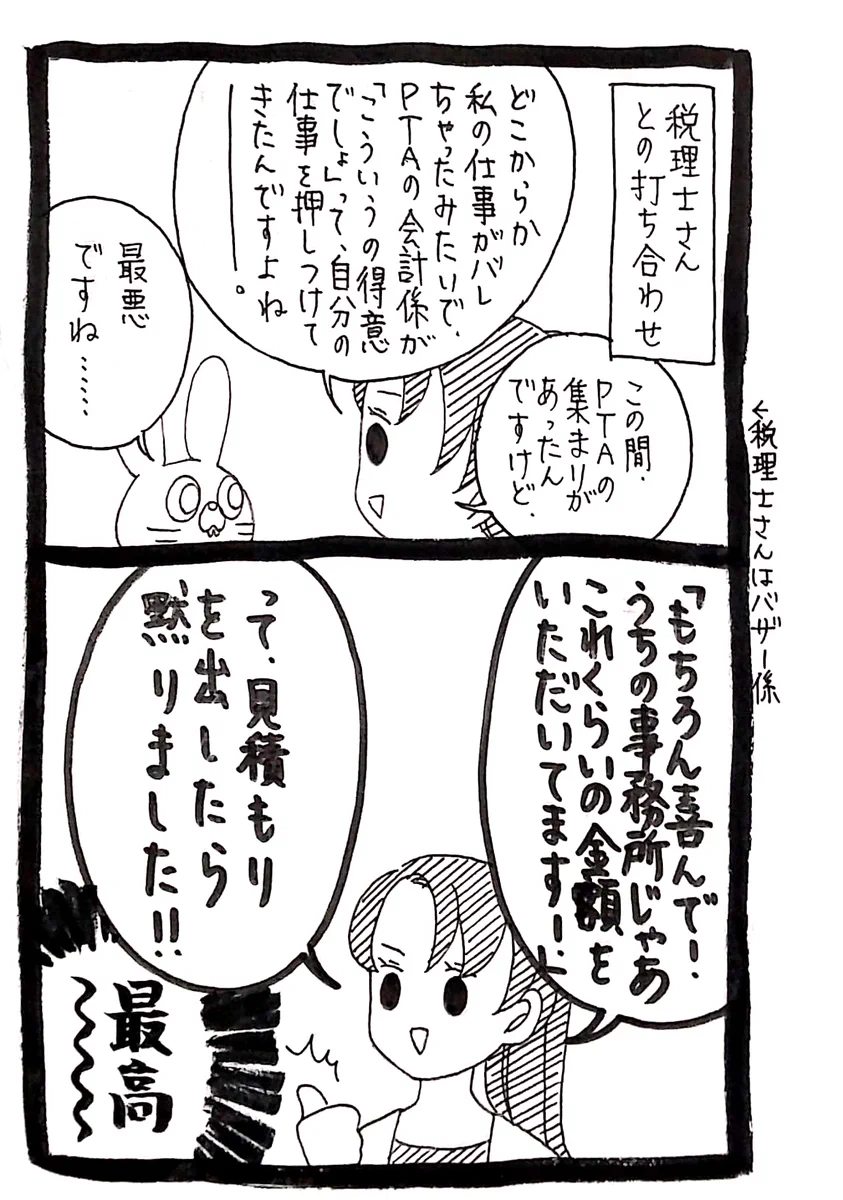 税理士さん
との打ち合わせ
この間、
PTAの
集まりが
あったん
ですけど、
どこからか
私の仕事がバレ
ちゃったみたいで、
PTAの会計係が
「こういうの得意
でしょ」って、自分の
仕事を押しつけて
きたんですよね
ーーー。
最悪
ですね……
←税理士さんはバザー係
「もちろん喜んでー！
うちの事務所じゃあ
これくらいの金額を
いただいてますー！」
って、見積もり
を出したら
黙りました!!
最高
〜〜〜